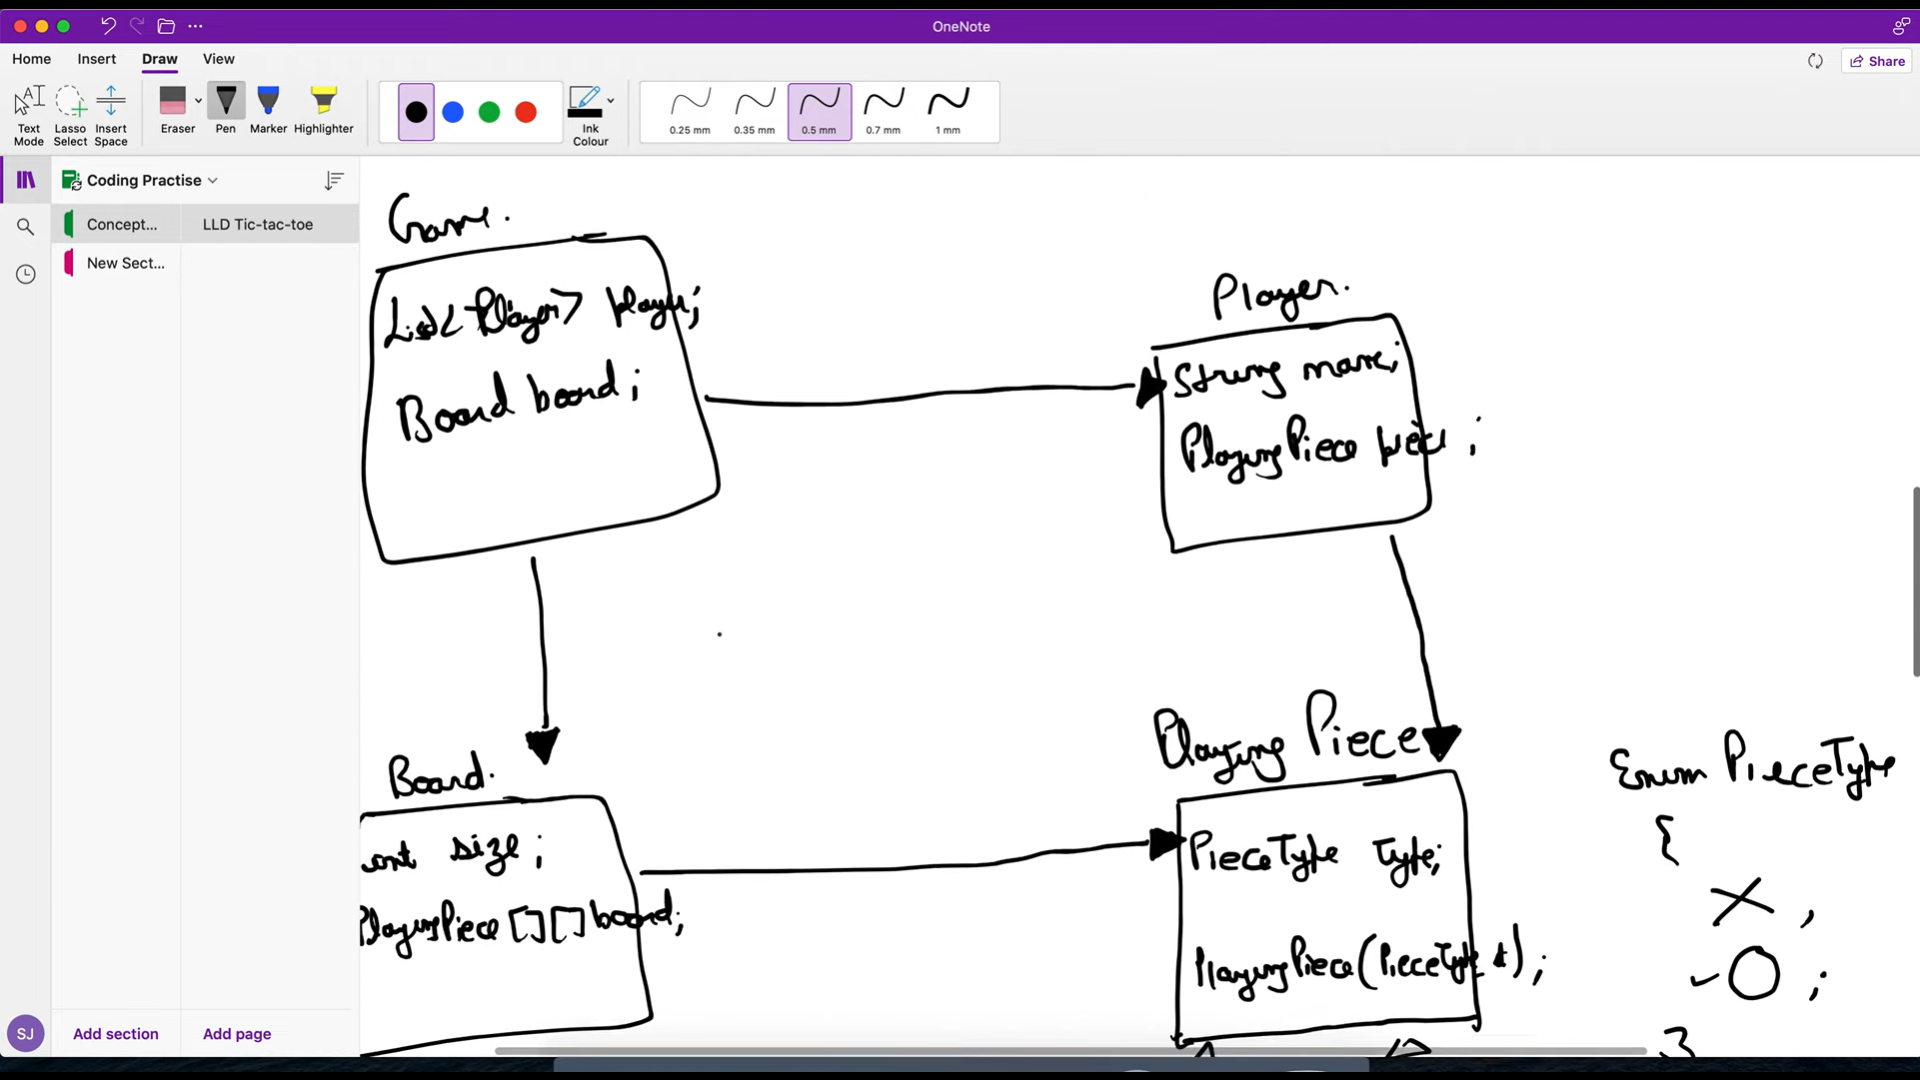 OneNote
Home Insert Draw View
Share
Text Mode
Lasso Select
Insert Space
Eraser
Pen
Marker
Highlighter
Ink Colour
0.25 mm
0.35 mm
0.5 mm
0.7 mm
1 mm
Coding Practise
Concept...
LLD Tic-tac-toe
New Sect...
Game.
List<Player> player;
Board board;
Player.
String name;
PlayingPiece piece;
Board.
int size;
PlayingPiece[][] board;
Playing Piece
PieceType type;
PlayingPiece(PieceType t);
Enum PieceType
{
X,
O;
}
SJ
Add section
Add page